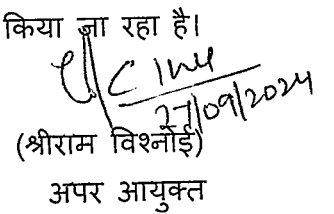 किया जा रहा है।
27/09/2024
(श्रीराम विश्नोई)
अपर आयुक्त